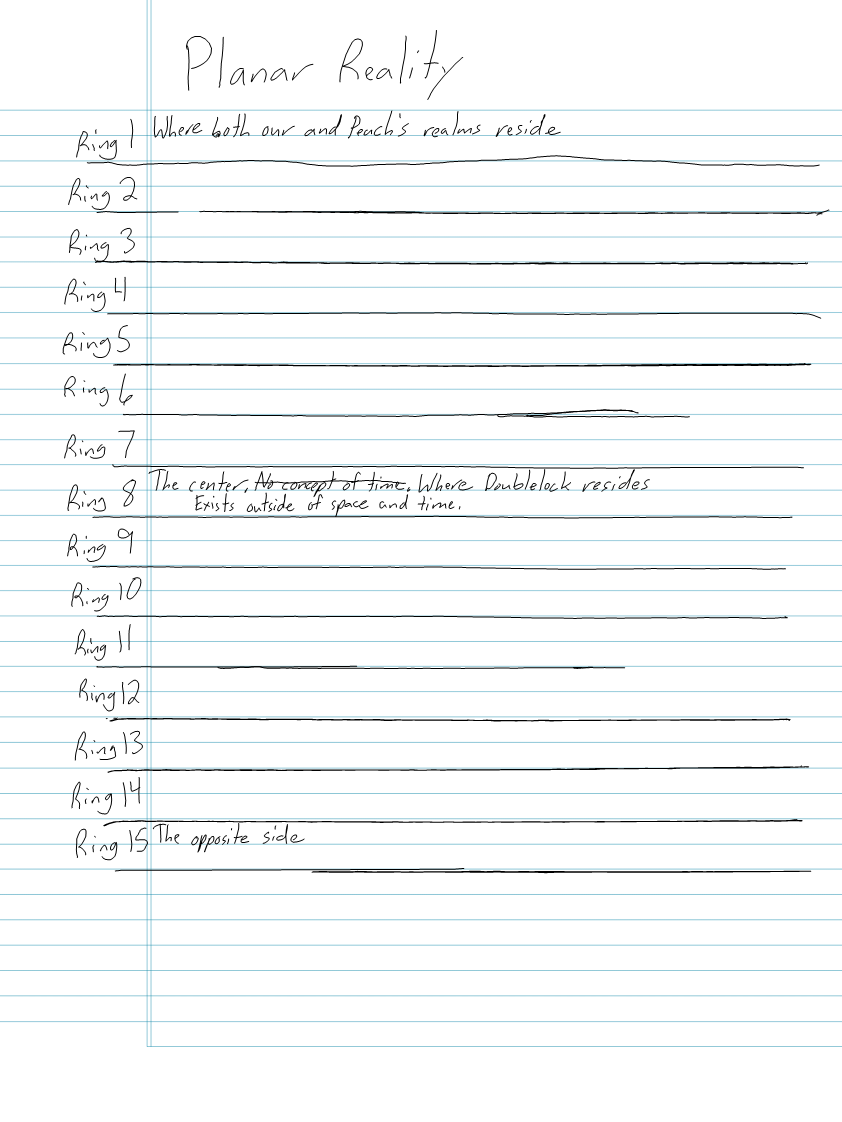 Planar Reality
Ring 1 Where both our and Peach's realms reside
Ring 2
Ring 3
Ring 4
Ring 5
Ring 6
Ring 7
Ring 8 The center. No concept of time. Where Doublelock resides
Exists outside of space and time.
Ring 9
Ring 10
Ring 11
Ring 12
Ring 13
Ring 14
Ring 15 The opposite side